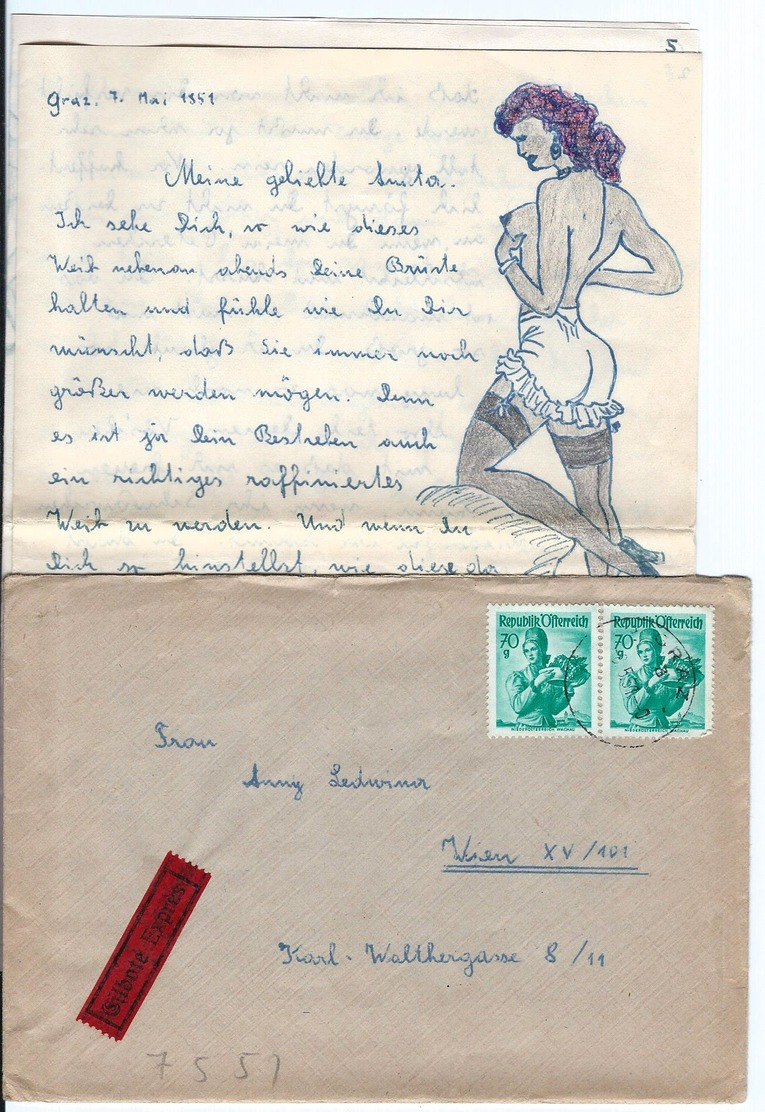 5
Graz. 7. Mai 1951
Meine geliebte Anita.
Ich sehe Dich, so wie dieses
Weib nebenan abends Deine Brüste
halten und fühle wie Du Dir
wünscht, daß sie immer noch
größer werden mögen. Denn
es ist ja Dein Bestreben auch
ein richtiges raffiniertes
Weib zu werden. Und wenn Du
Dich so hinstellst, wie diese da
Republik Österreich
70
g
NIEDERÖSTERREICH WACHAU
Republik Österreich
70
g
NIEDERÖSTERREICH WACHAU
GRAZ
Frau
Anny Ledwina
Wien XV/101
Karl-Walthergasse 8/11
Eilbote Expres
7 5 51